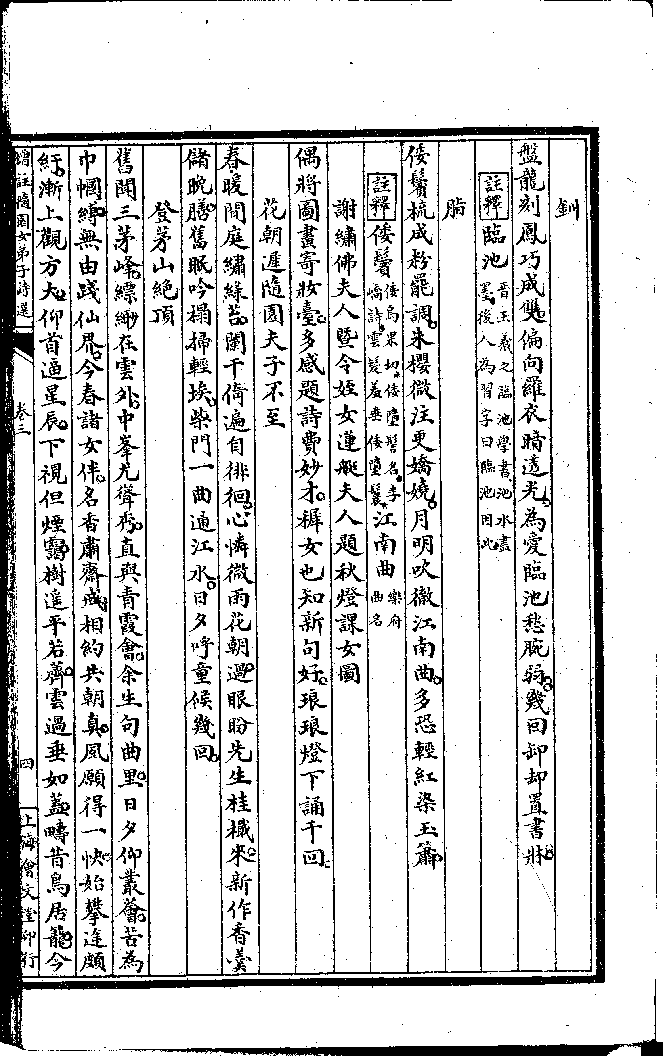 釧
盤龍刻鳳巧成雙。偏向羅衣暗透光。為愛臨池愁腕弱。幾回卸却置書牀。
註釋 臨池 晉王羲之臨池學書池水盡墨後人為習字曰臨池因此
脂
倭鬌梳成粉罷調。朱櫻微注更嬌嬈。月明吹徹江南曲。多恐輕紅染玉簫。
註釋 倭鬌 倭烏果切。倭墮髻名。李嶠詩雲髮羞垂倭墮鬟 江南曲 樂府曲名
謝繡佛夫人暨令姪女蓮艇夫人題秋燈課女圖
偶將圖畫寄妝臺。多感題詩費妙才。穉女也知新句好。琅琅燈下誦千回。
花朝遲隨園夫子不至
春暖閒庭繡綠苔。闌干倚遍自徘徊。心憐微雨花朝過。眼盼先生桂檝來。新作香羹
儲晚膳。舊眠吟榻掃輕埃。柴門一曲通江水。日夕呼童候幾回。
登茅山絕頂
舊聞三茅峰。縹緲在雲外。中峯尤聳秀。直與青霞會。余生句曲里。日夕仰叢薈。苦為
巾幗縛。無由踐仙界。今春諸女伴。名香肅齋戒。相約共朝真。夙願得一快。始攀逵頗
紆。漸上觀方大。仰首逼星辰。下視但煙靄。樹遙平若薺。雲過垂如蓋。疇昔鳥居籠。今
註隨園女弟子詩選
卷三
四
上海會文堂印行